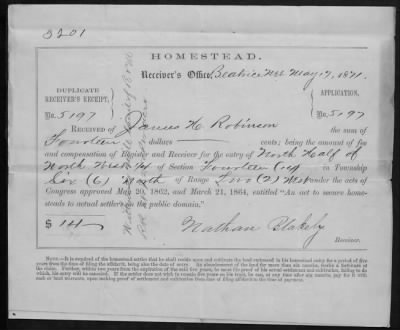 3201
HOMESTEAD.
Receiver's Office, Beatrice Neb May 7, 1871.
DUPLICATE
RECEIVER'S RECEIPT,
APPLICATION,
No. 5197
No. 5197
RECEIVED OF James H. Robinson the sum of
Fourteen dollars cents; being the amount of fee
and compensation of Register and Receiver for the entry of North Half of
North West 1/4 of Section Fourteen in Township
Six (6) North of Range Two (2) under the acts of
Congress approved May 20, 1862, and March 21, 1864, entitled "An act to secure home-
steads to actual settlers on the public domain."
$ 14
Nathan Blakely
Receiver.
NOTE.—It is required of the homestead settler that he shall reside upon and cultivate the land embraced in his homestead entry for a period of five
years from the time of filing the affidavit, being also the date of entry. An abandonment of the land for more than six months, works a forfeiture of
his claim. Further, within two years from the expiration of the said five years, he must file proof of his actual settlement and cultivation, failing to do
which, his entry will be canceled. If the settler does not wish to remain five years on his tract, he can, at any time after six months, pay for it with
cash or land warrants, upon making proof of settlement and cultivation from date of filing affidavit to the time of payment.